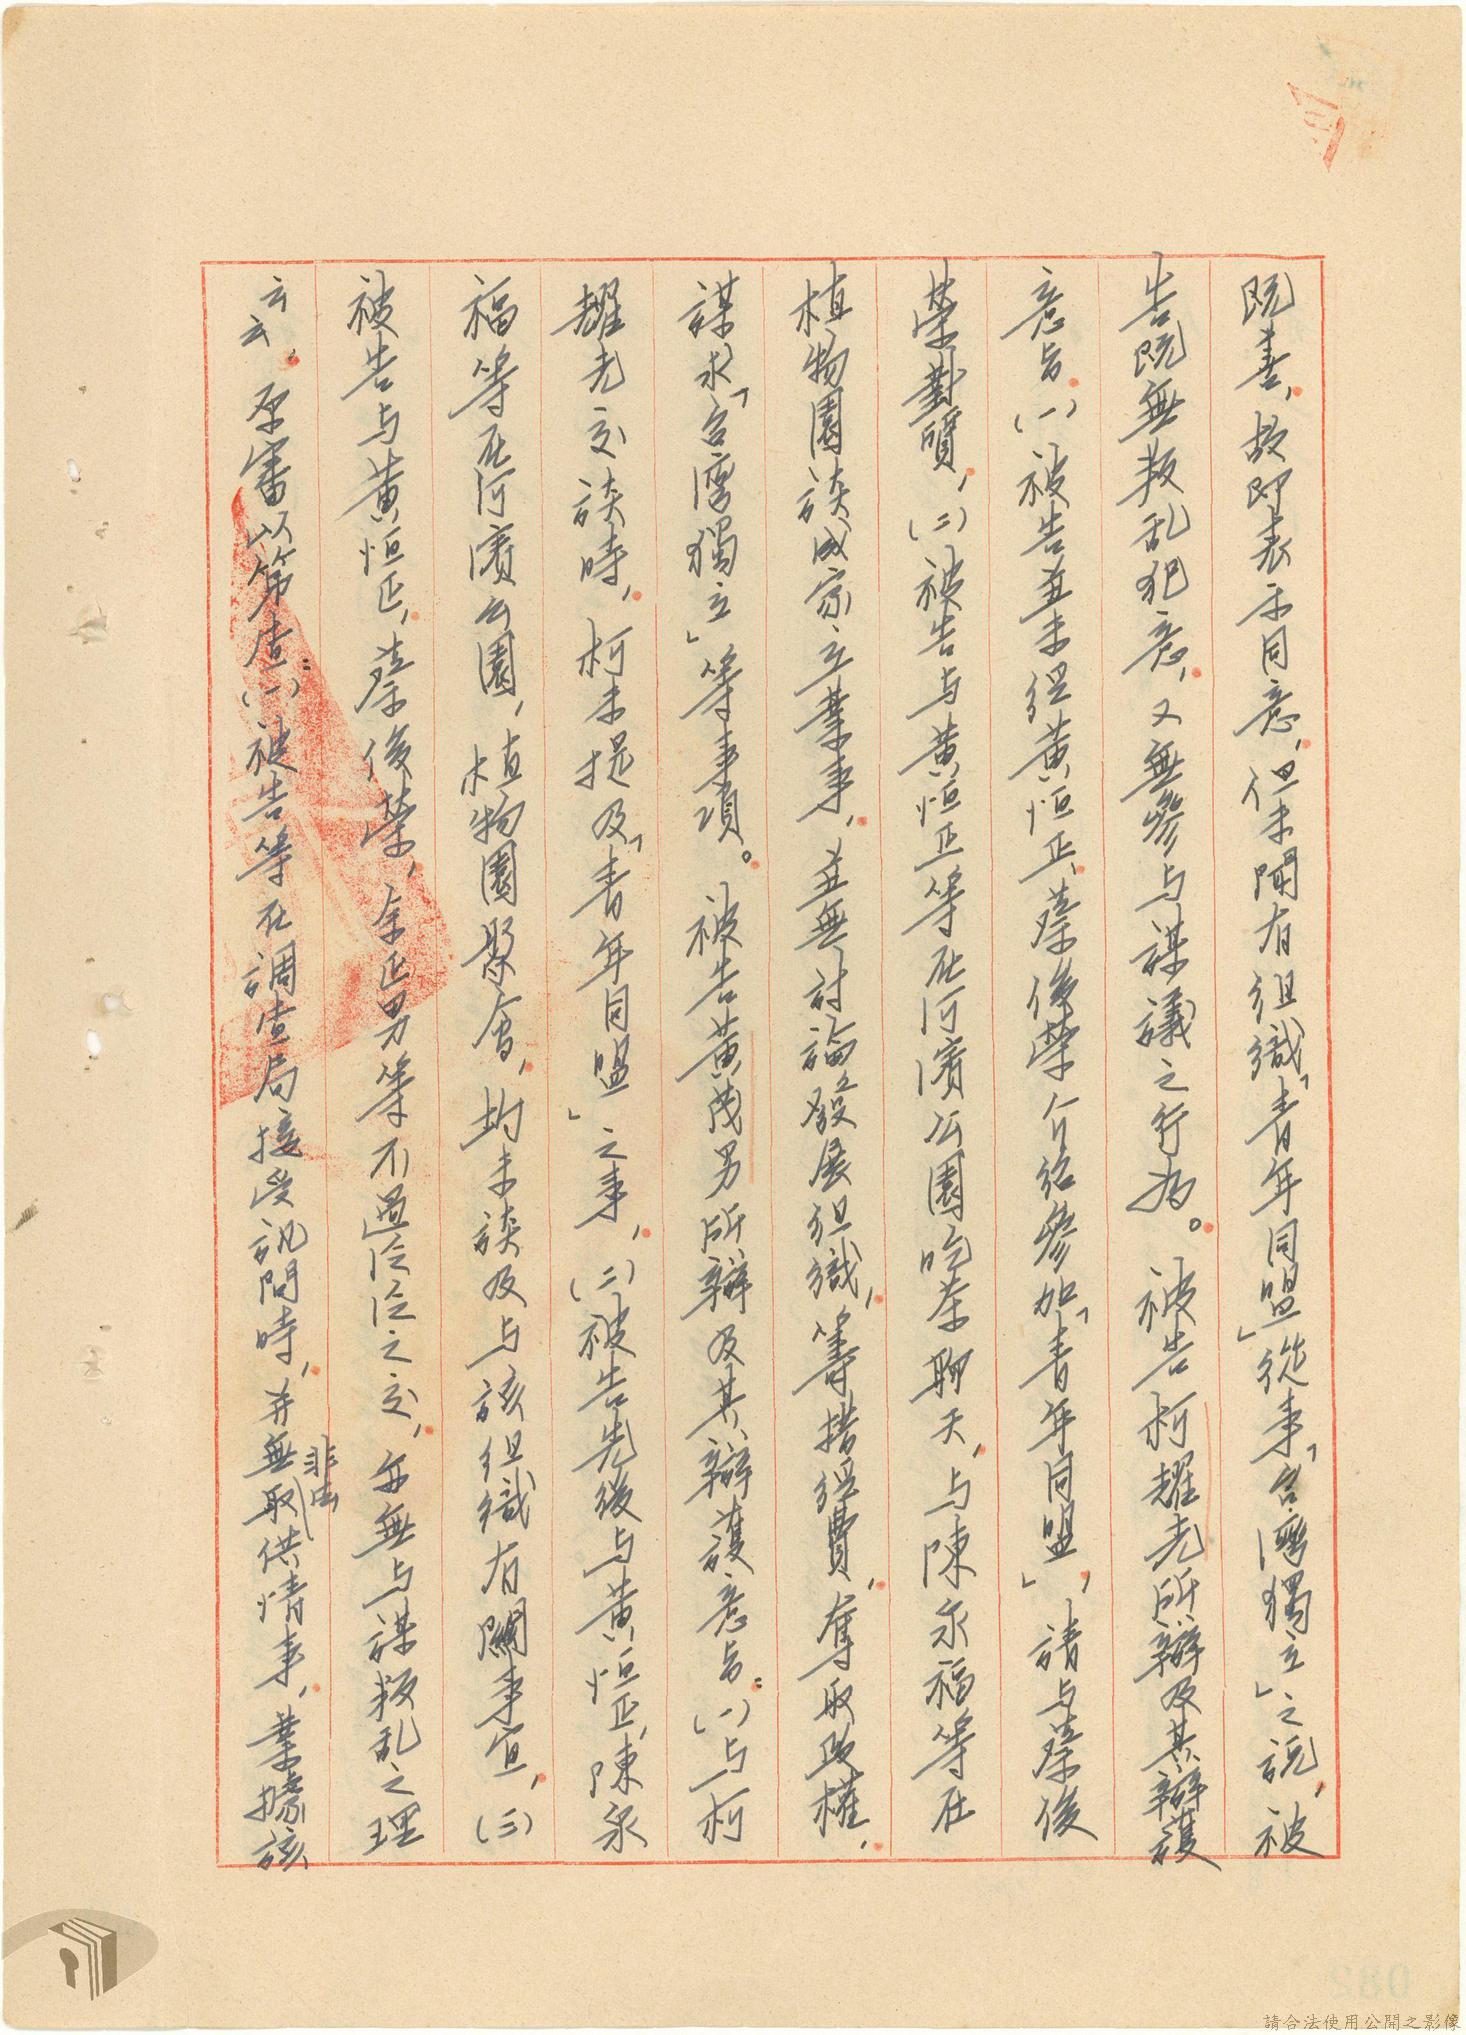 既善，故即表示同意，但未聞有組織「青年同盟」從事「台灣獨立」之說，被
告既無叛乱犯意，又無參与謀議之行為。被告柯耀光所辯及其辯護
意旨(一)被告並未經黃恒正、蔡俊榮介紹參加「青年同盟」，請与蔡俊
榮對質，(二)被告与黃恒正等在河濱公園吃茶聊天，与陳永福等在
植物園談成家立業事，並無討論發展組織，籌措經費，奪取政權，
謀求「台灣獨立」等事項。被告黃茂男所辯及其辯護意旨：(一)与柯
耀光交談時，柯未提及「青年同盟」之事，(二)被告先後与黃恒正，陳永
福等在河濱公園，植物園聚會，均未談及与該組織有關事宜，(三)
被告与黃恒正，蔡俊榮，余正男等不過泛泛之交，亦無与謀叛乱之理
云云。原審以第查：(一)被告等在調查局接受訊問時，并無非法取供情事，業據該
請合法使用公開之影像